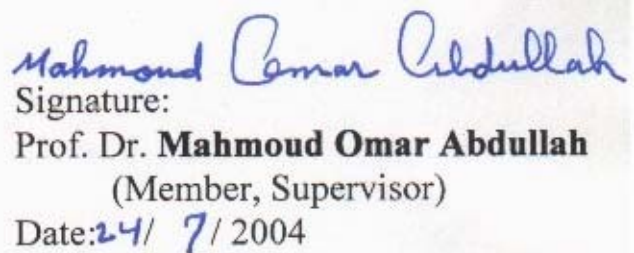 Mahmoud Omar Abdullah
Signature:
Prof. Dr. Mahmoud Omar Abdullah
(Member, Supervisor)
Date:24/ 7/ 2004